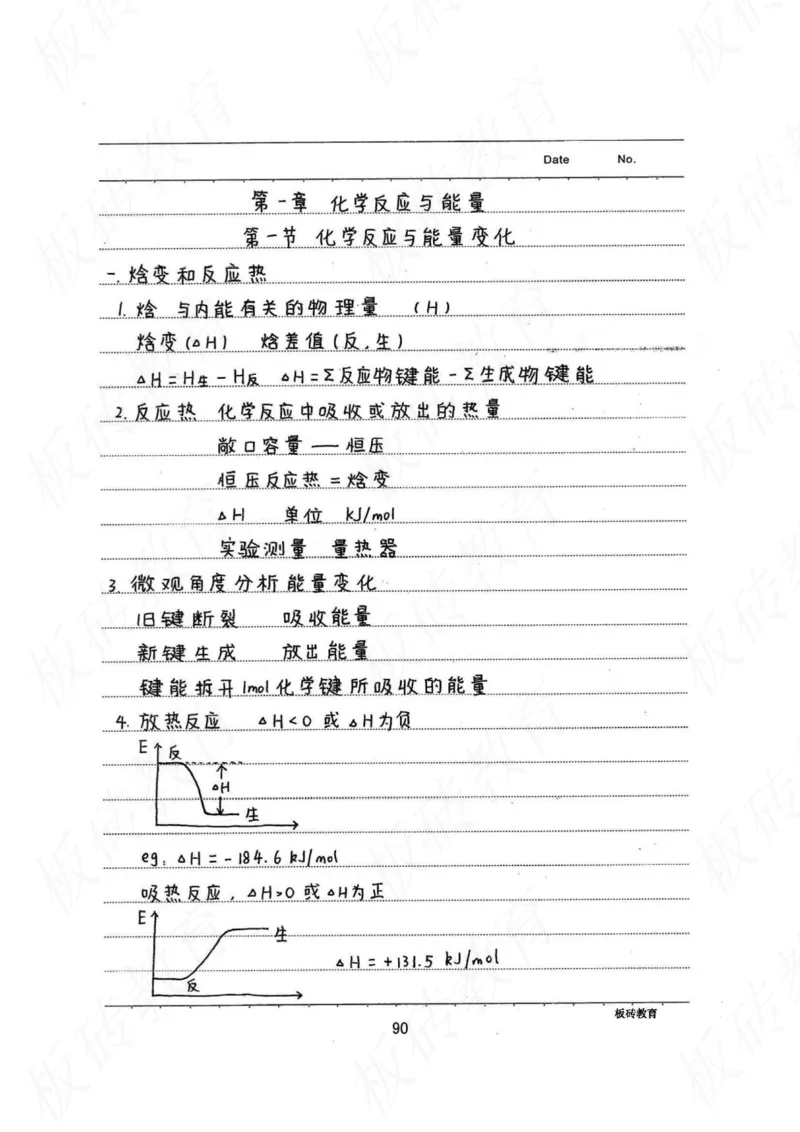 Date No.
第一章 化学反应与能量
第一节 化学反应与能量变化
一. 焓变和反应热
1. 焓 与内能有关的物理量 (H)
焓变(△H) 焓差值(反,生)
△H=H生-H反 △H=Σ反应物键能-Σ生成物键能
2. 反应热 化学反应中吸收或放出的热量
敞口容量 — 恒压
恒压反应热 = 焓变
△H 单位 kJ/mol
实验测量 量热器
3. 微观角度分析能量变化
旧键断裂 吸收能量
新键生成 放出能量
键能拆开1mol化学键所吸收的能量
4. 放热反应 △H<0 或 △H为负
E 反
△H
生
eg: △H = -184.6 kJ/mol
吸热反应, △H>0 或 △H为正
E
生
△H = +131.5 kJ/mol
反
板砖教育
90